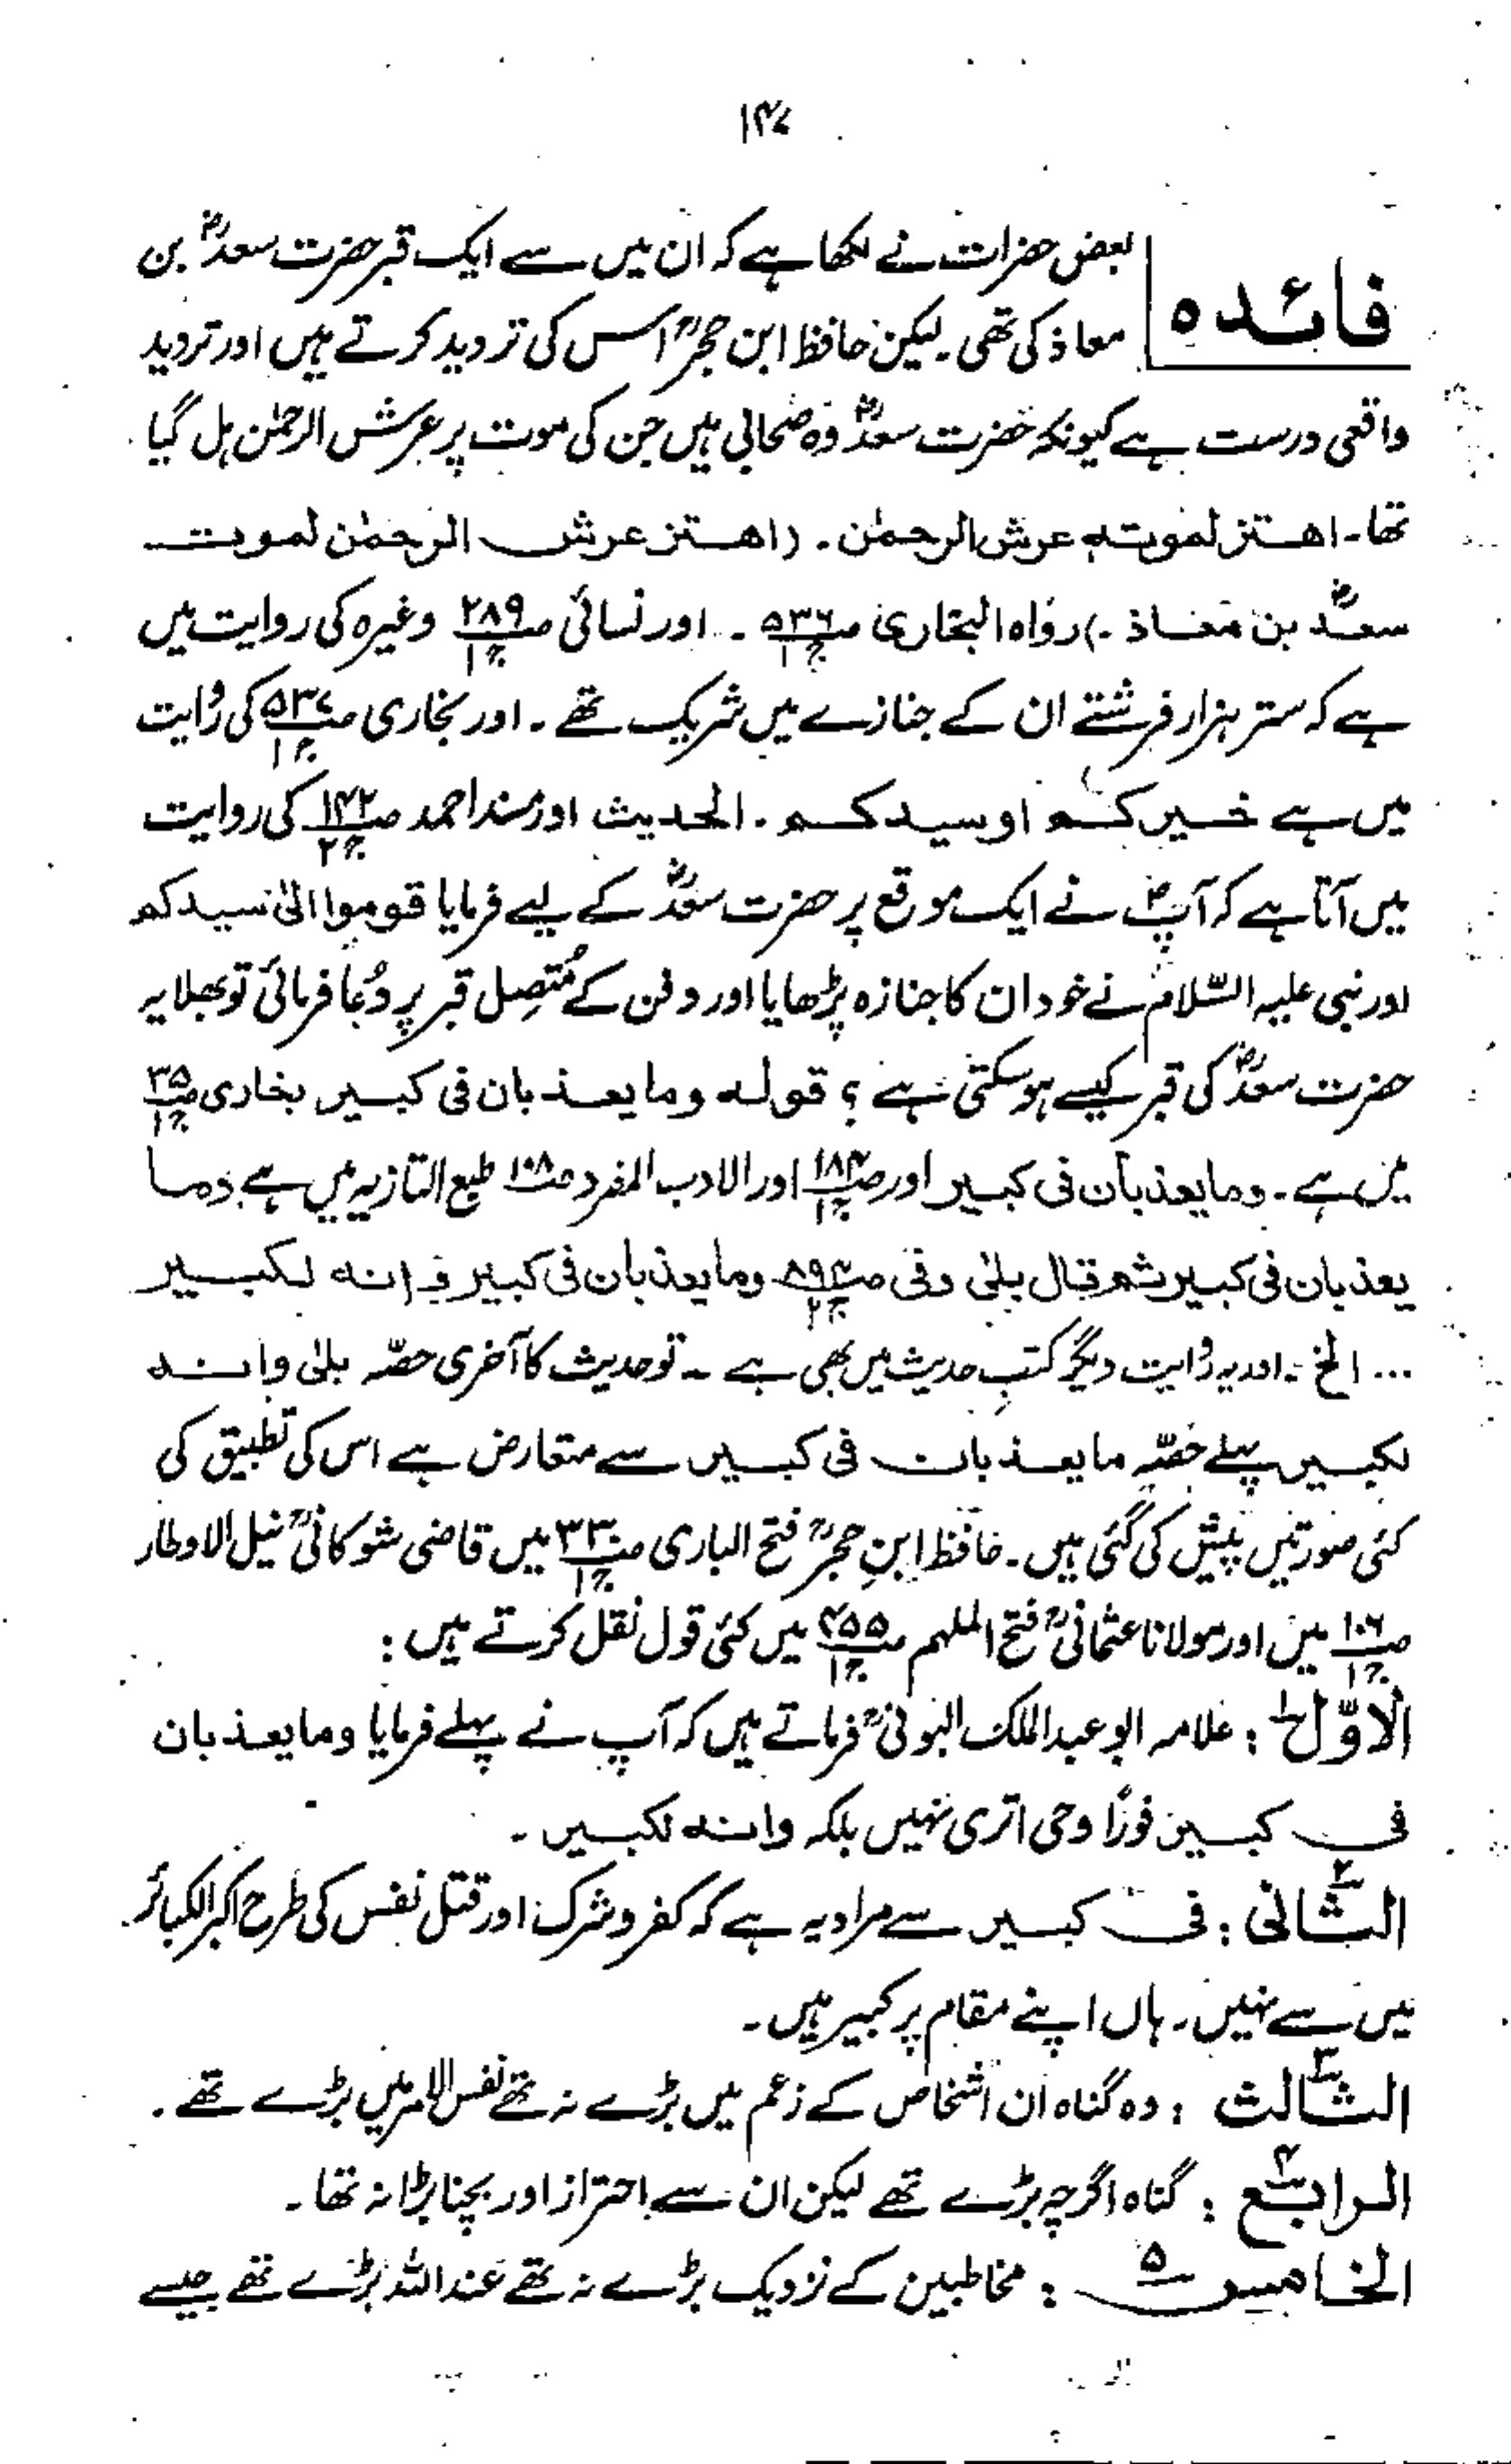 ۱۴۷
فائدہ
بعض حضرات نے لکھا ہے کہ ان میں سے ایک قبر حضرت سعدؓ بن
معاذ کی تھی۔ لیکن حافظ ابن حجرؒ اس کی تردید کرتے ہیں اور تردید
واقعی درست ہے کیونکہ حضرت سعدؓ وہ صحابی ہیں جن کی موت پر عرش الرحمٰن ہل گیا
تھا۔ اھتز لموتہ عرش الرحمٰن۔ (اھتز عرش الرحمٰن لموت
سعدؓ بن معاذ۔) رواہ البخاری ص۵۳۶ ج۱ ۔ اور نسائی ص۲۸۹ ج۱ وغیرہ کی روایت میں
ہے کہ ستر ہزار فرشتے ان کے جنازے میں شریک تھے۔ اور بخاری ص۵۳۷ ج۱ کی روایت
میں ہے خیرکم او سیدکم۔ الحدیث اور مسند احمد ص۱۴۲ ج۲ کی روایت
میں آتا ہے کہ آپؐ نے ایک موقع پر حضرت سعدؓ کے لیے فرمایا قوموا الیٰ سیدکم
اور نبی علیہ السّلام نے خود ان کا جنازہ پڑھایا اور دفن کے مُتصِل قبر پر دُعا فرمائی تو بھلا یہ
حضرت سعدؓ کی قبر کیسے ہو سکتی ہے ؟ قولہ وما یعذبان فی کبیر بخاری ص۳۵ ج۱
میں ہے۔ وما یعذبان فی کبیر اور ص۱۸۴ ج۱ اور الادب المفرد ص۱۰۸ طبع التازیہ میں ہے وما
یعذبان فی کبیر ثم قال بلیٰ وفی ص۸۹۴ ج۲ وما یعذبان فی کبیر و انہ لکبیر
... الخ ۔ اور یہ روایت دیگر کتبِ حدیث میں بھی ہے ۔ تو حدیث کا آخری حصّہ بلیٰ وانہ
لکبیر پہلے حصّہ ما یعذبان فی کبیر سے متعارض ہے اس کی تطبیق کی
کئی صورتیں پیش کی گئی ہیں۔ حافظ ابنِ حجرؒ فتح الباری ص۳۳۰ ج۱ میں قاضی شوکانیؒ نیل الاوطار
ص۱۰۶ ج۱ میں اور مولانا عثمانیؒ فتح الملہم ص۴۵۵ ج۱ میں کئی قول نقل کرتے ہیں :
الاوّل۱ : علامہ ابو عبد الملک البونیؒ فرماتے ہیں کہ آپ نے پہلے فرمایا وما یعذبان
فی کبیر فورًا وحی اتری نہیں بلکہ وانہ لکبیر ۔
الثانی۲ : فی کبیر سے مراد یہ ہے کہ کفر و شرک اور قتل نفس کی طرح اکبر الکبائر
میں سے نہیں۔ ہاں اپنے مقام پر کبیر ہیں۔
الثالث۳ : وہ گناہ ان اشخاص کے زعم میں بڑے نہ تھے نفس الامر میں بڑے تھے۔
الرابع۴ : گناہ اگرچہ بڑے تھے لیکن ان سے احتراز اور بچنا بڑا نہ تھا۔
الخامس۵ : مخاطبین کے نزدیک بڑے نہ تھے عند اللہ بڑے تھے جیسے